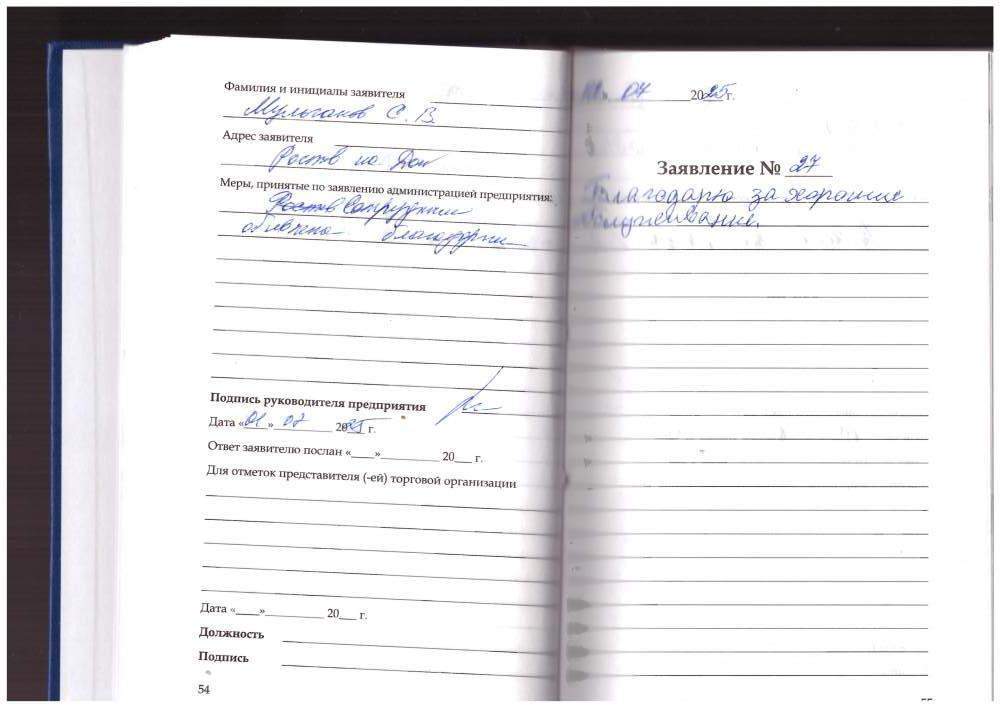 Фамилия и инициалы заявителя
С. В.
Адрес заявителя
Роств на Дон
Меры, принятые по заявлению администрацией предприятия:
благодарны
Подпись руководителя предприятия
Дата «01» 07 2025 г.
Ответ заявителю послан «___»__________ 20___ г.
Для отметок представителя (-ей) торговой организации
Дата «____»__________ 20___ г.
Должность
Подпись
54
07 2025г.
Заявление № 27
Благодарю за хорошие